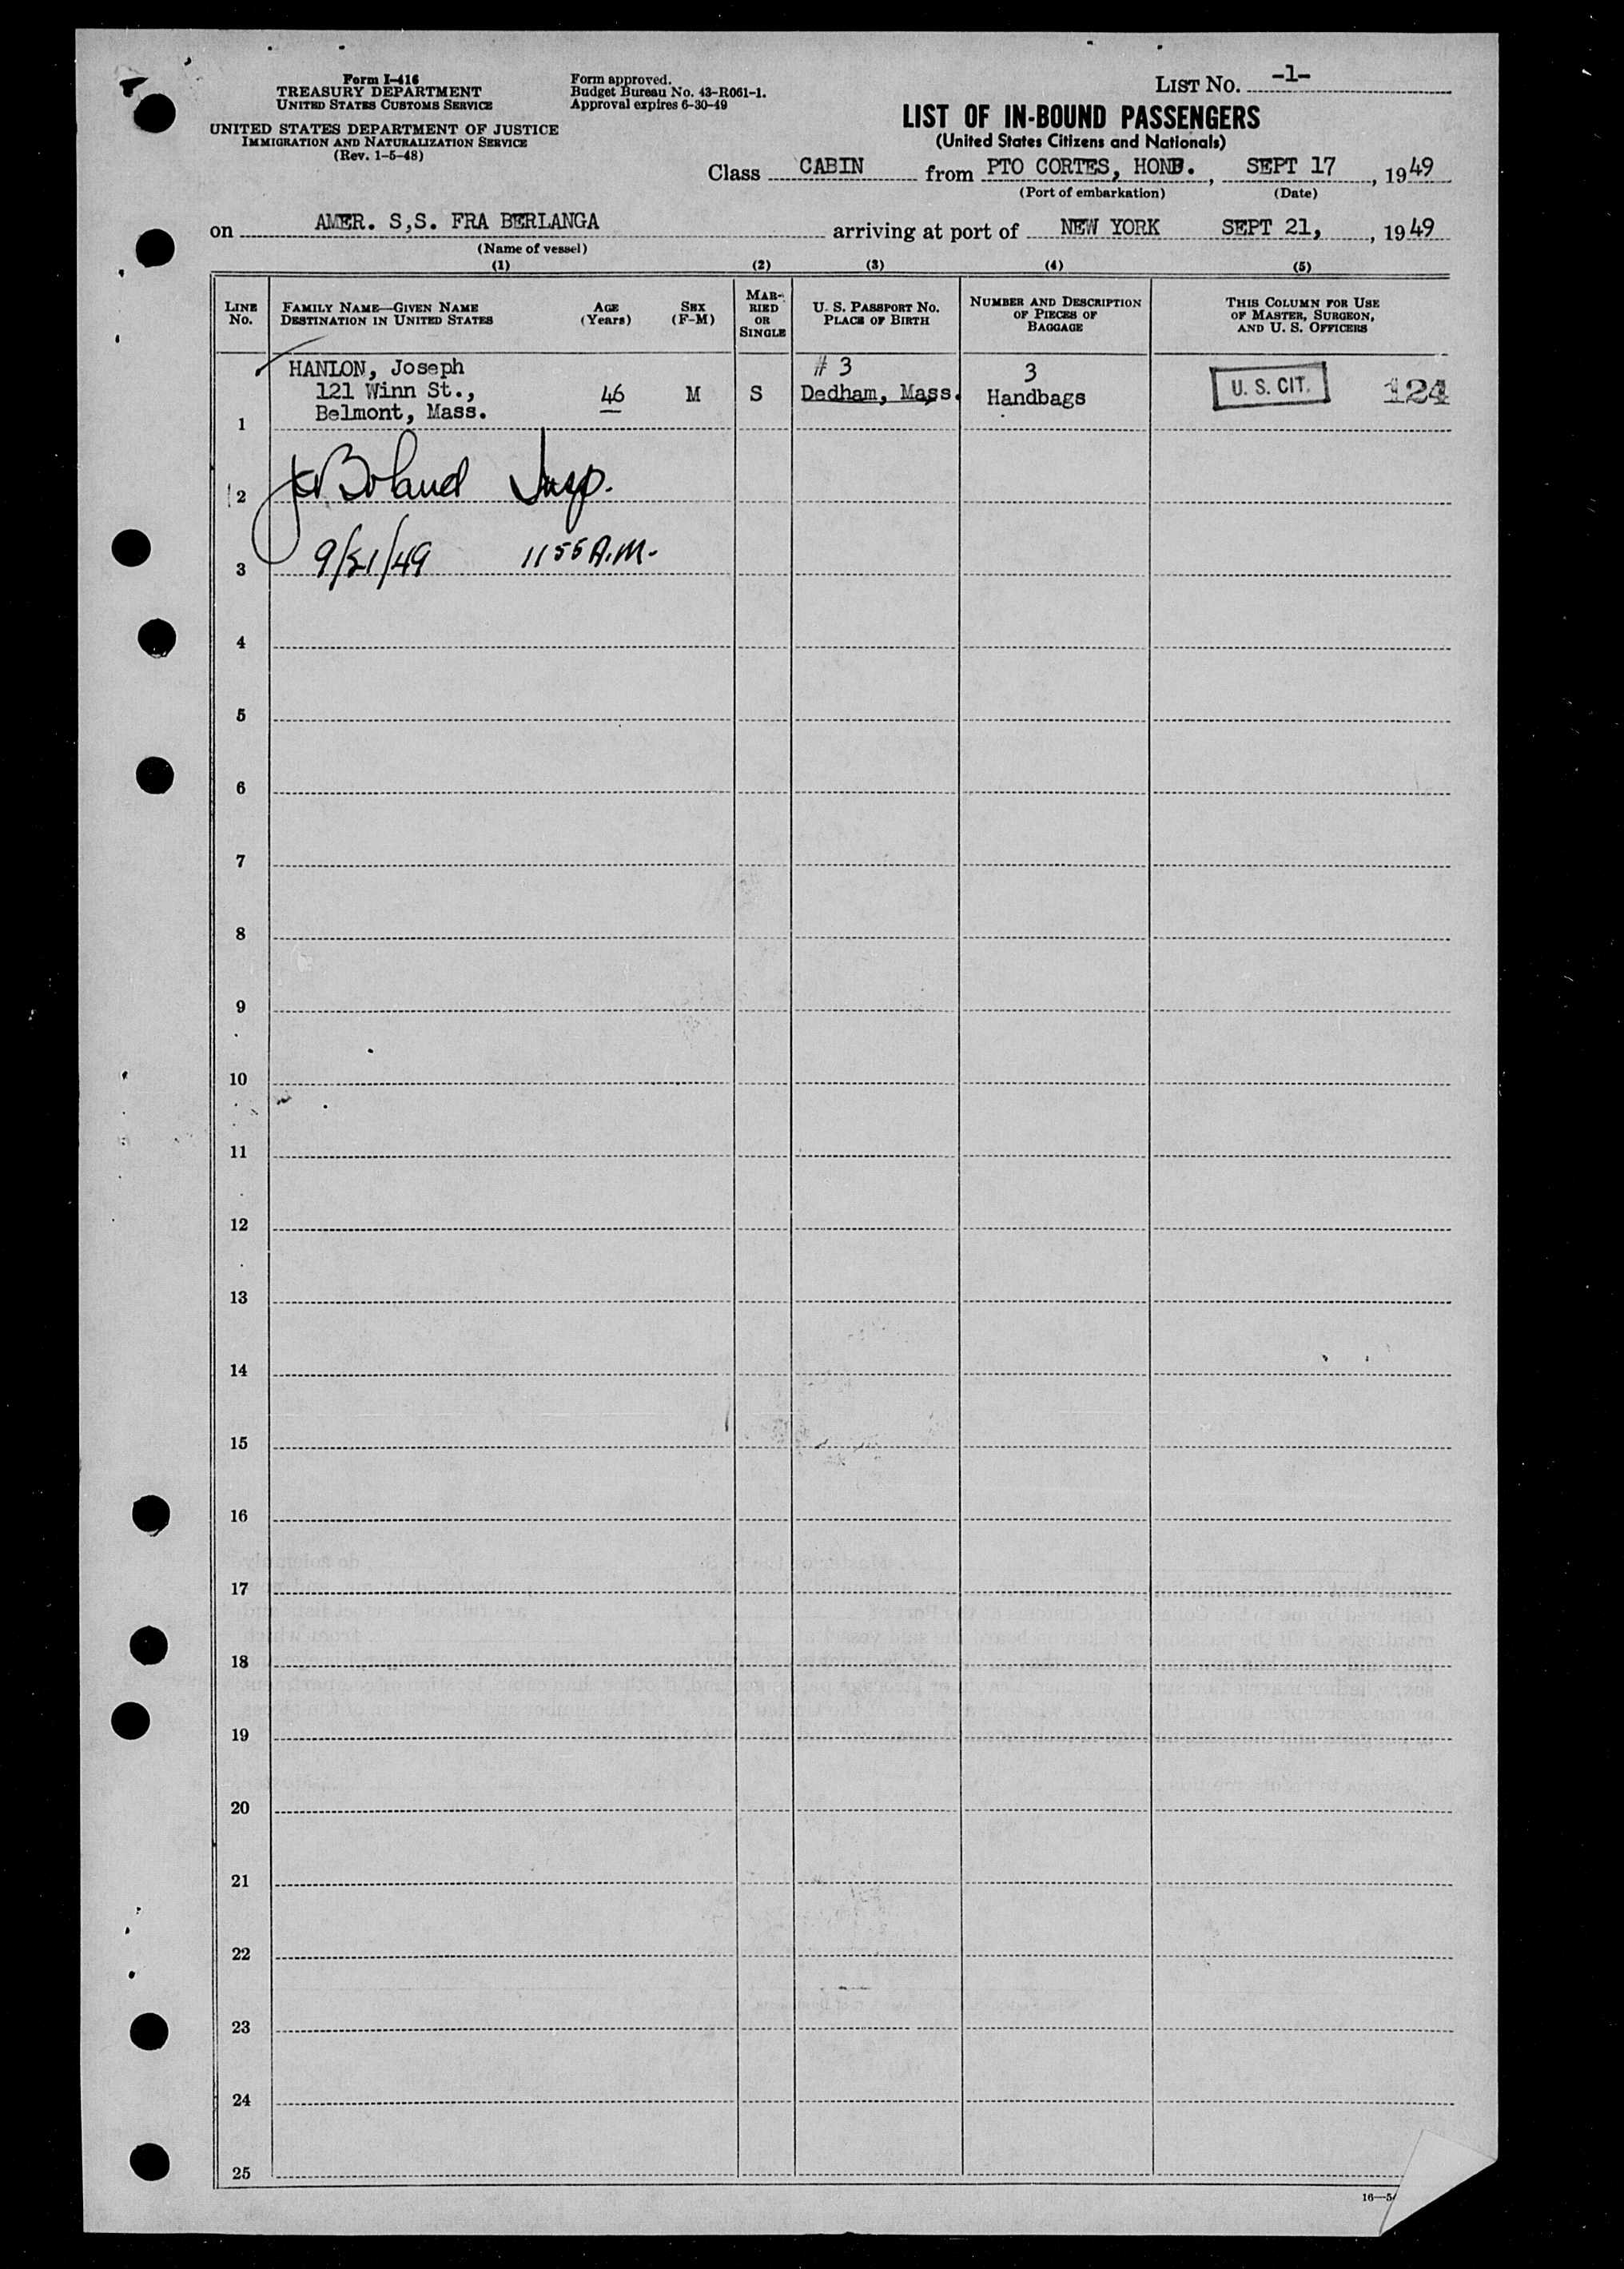 Form I-416
TREASURY DEPARTMENT
UNITED STATES CUSTOMS SERVICE
UNITED STATES DEPARTMENT OF JUSTICE
IMMIGRATION AND NATURALIZATION SERVICE
(Rev. 1-5-48)
Form approved.
Budget Bureau No. 43-R061-1.
Approval expires 6-30-49
LIST NO. -1-
LIST OF IN-BOUND PASSENGERS
(United States Citizens and Nationals)
Class CABIN from PTO CORTES, HOND., SEPT 17, 1949
(Port of embarkation) (Date)
on AMER. S,S. FRA BERLANGA arriving at port of NEW YORK SEPT 21, , 1949
(Name of vessel)
(1) (2) (3) (4) (5)
LINE No.
FAMILY NAME—GIVEN NAME
DESTINATION IN UNITED STATES
AGE
(Years)
SEX
(F-M)
MAR-
RIED
OR
SINGLE
U. S. PASSPORT No.
PLACE OF BIRTH
NUMBER AND DESCRIPTION
OF PIECES OF
BAGGAGE
THIS COLUMN FOR USE
OF MASTER, SURGEON,
AND U. S. OFFICERS
HANLON, Joseph # 3 3
121 Winn St., 46 M S Dedham, Mass. Handbags U. S. CIT. 124
Belmont, Mass.
1
2 Boland Insp.
3 9/21/49 1155 A.M.
4
5
6
7
8
9
10
11
12
13
14
15
16
17
18
19
20
21
22
23
24
25